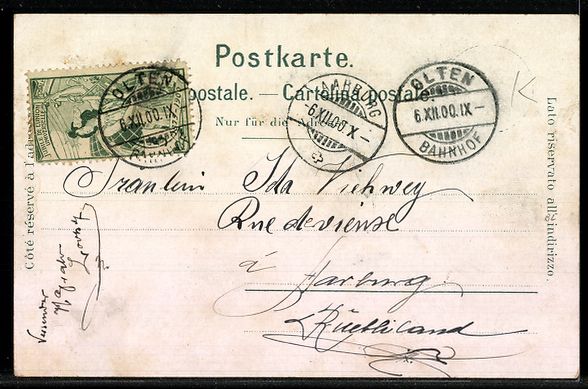 Postkarte.
postale. — Cartolina postale.
Nur für die Adresse
Côté réservé à l'adresse
Lato riservato all'indirizzo.
OLTEN
6.XII.00.IX
AARBURG
6XII.00.X–
OLTEN
6.XII.00.IX–
BAHNHOF
Fräulein Ida Viehweg
Rue de vienne
à Aarburg
Rüebliland